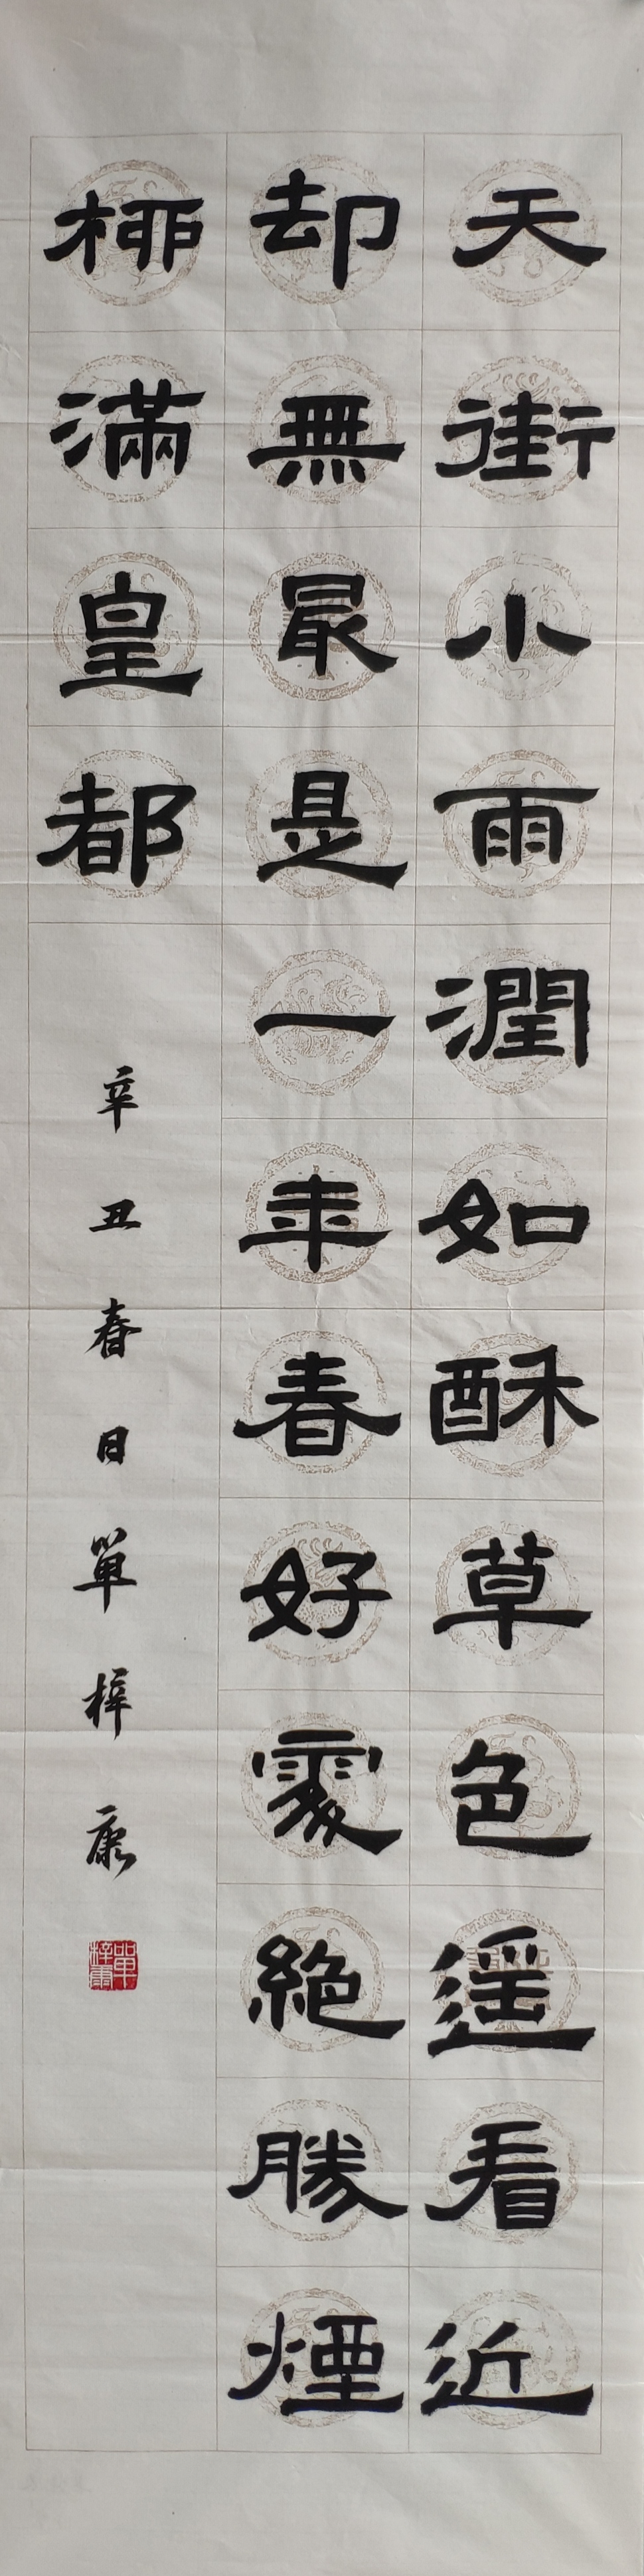 天街小雨潤如酥草色遥看近
却無最是一年春好處絶勝煙
柳滿皇都
辛丑春日單梓康
單梓康